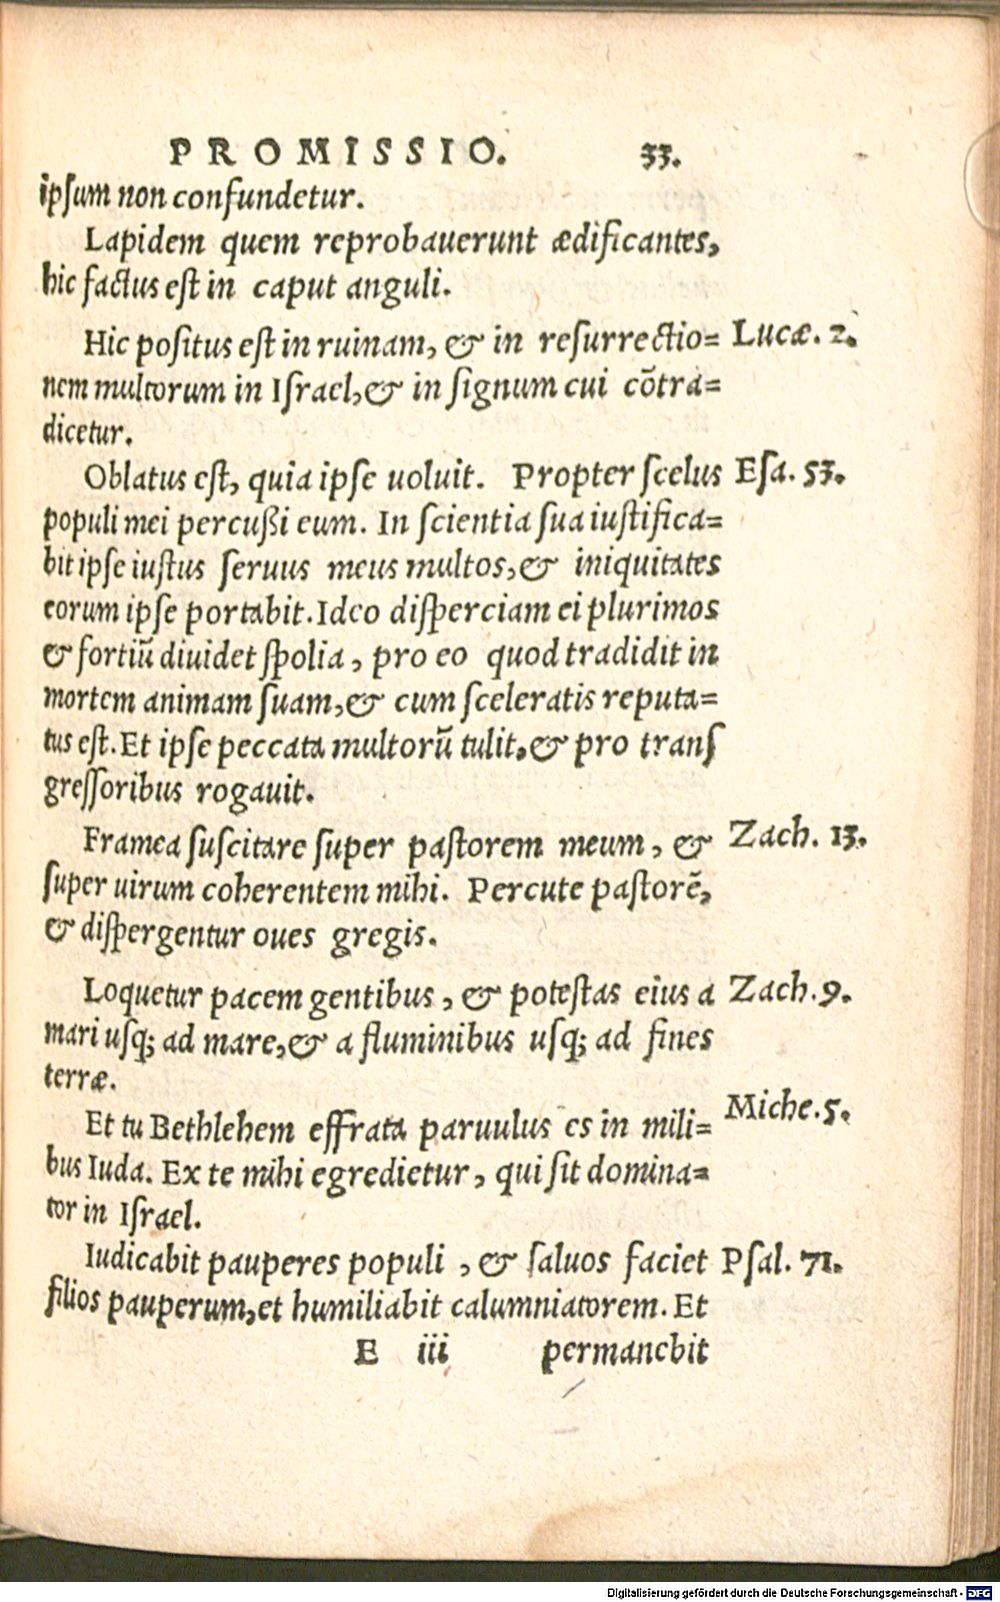 PROMISSIO. 33.
ipsum non confundetur.
Lapidem quem reprobauerunt ædificantes,
hic factus est in caput anguli.
Hic positus est in ruinam, & in resurrectio= Lucæ. 2.
nem multorum in Israel, & in signum cui cōtra=
dicetur.
Oblatus est, quia ipse uoluit. Propter scelus Esa. 53.
populi mei percußi eum. In scientia sua iustifica=
bit ipse iustus seruus meus multos, & iniquitates
eorum ipse portabit. Ideo disperciam ei plurimos
& fortiū diuidet spolia, pro eo quod tradidit in
mortem animam suam, & cum sceleratis reputa=
tus est. Et ipse peccata multorū tulit, & pro trans
gressoribus rogauit.
Framea suscitare super pastorem meum, & Zach. 13.
super uirum coherentem mihi. Percute pastorē,
& dispergentur oues gregis.
Loquetur pacem gentibus, & potestas eius a Zach. 9.
mari usq; ad mare, & a fluminibus usq; ad fines
terræ.
Et tu Bethlehem effrata paruulus es in mili= Miche. 5.
bus Iuda. Ex te mihi egredietur, qui sit domina=
tor in Israel.
Iudicabit pauperes populi, & saluos faciet Psal. 71.
filios pauperum, et humiliabit calumniatorem. Et
E iii permanebit
Digitalisierung gefördert durch die Deutsche Forschungsgemeinschaft - DFG